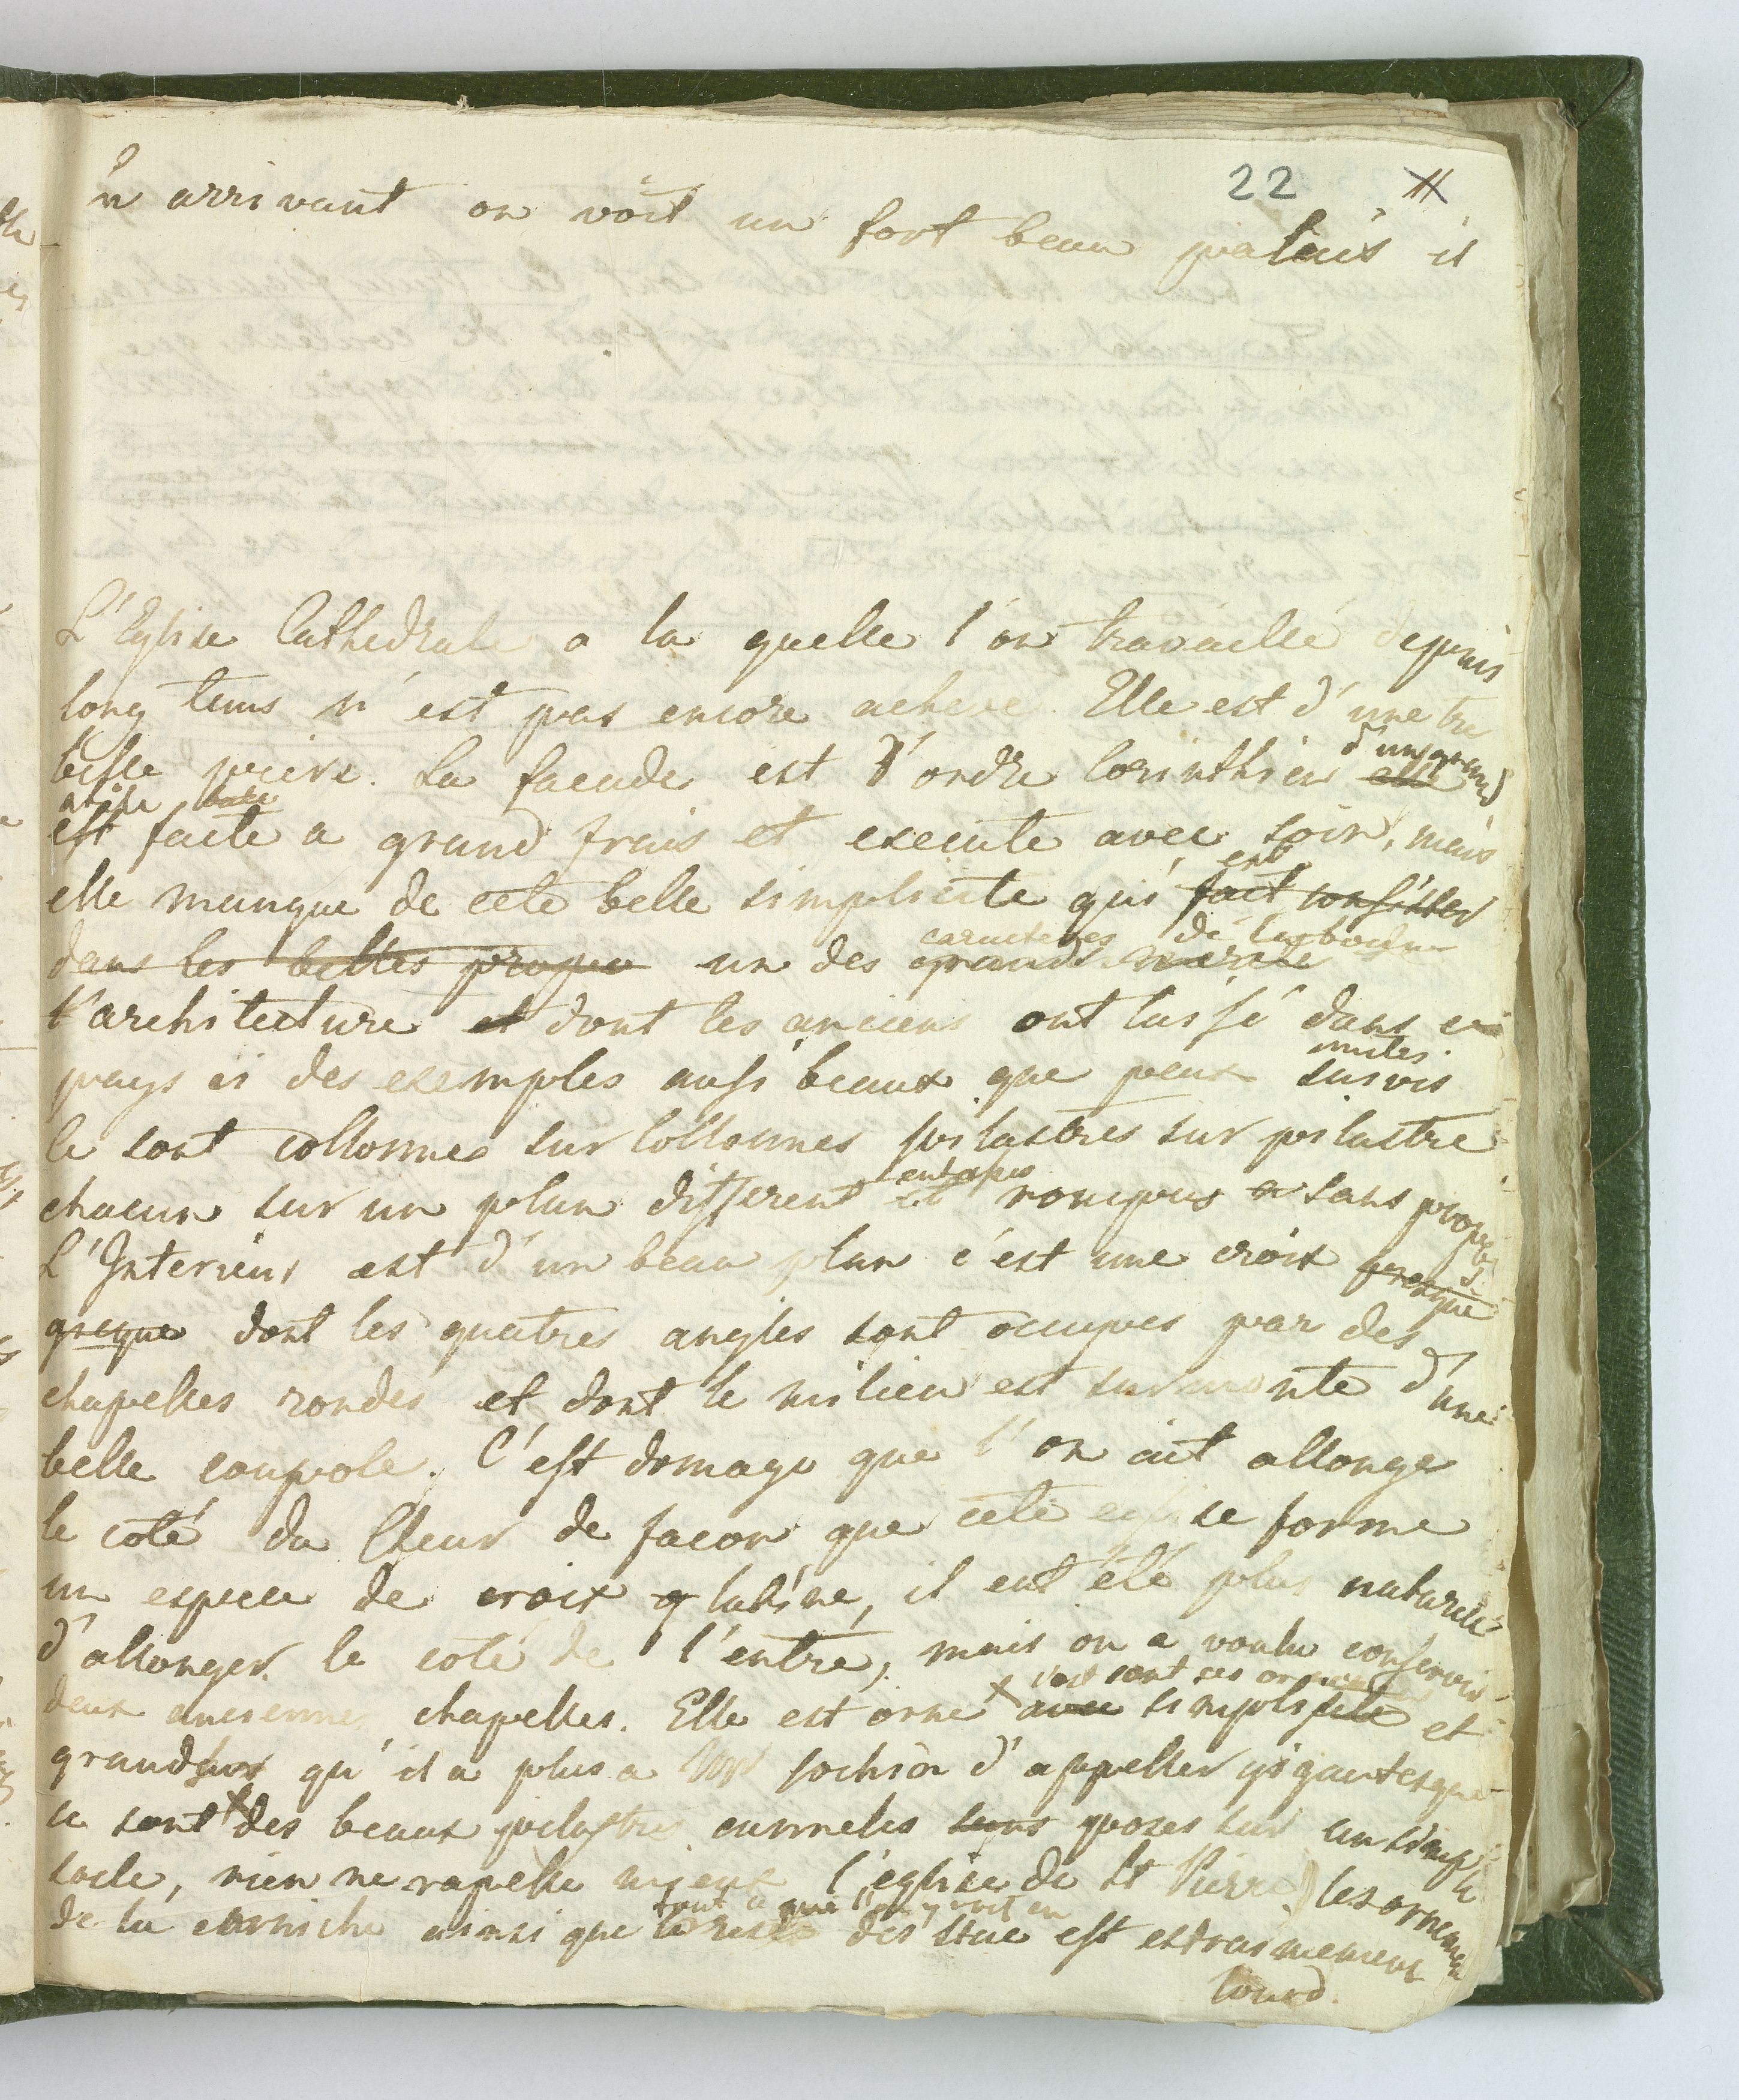 22
n arrivant on voit un fort beau palais il
L'Eglise Cathedrale a la quelle l'on travaille depuis
long tems n'est pas encore acheve. Elle est d'une tre
belle pierre. La facade est d'ordre Corinthien d'un grand
est faite a grand frais et execute avec soin, mais
elle manque de cete belle simplicite qui est fait consister
dans les belles propo un des grands caracteres de la bonne
l'architecture et dont les anciens ont laissé dans ce
pays ci des exemples aussi beaux que peux suivis imites.
Ce sont collonnes sur Collonnes pilastres sur pilastre
chacun sur un plan different et rompus a sans propos
L'Interieur est d'un beau plan c'est une croix presque
greque dont les quatres angles sont occupes par des
chapelles rondes et dont le milieu est surmonte d'une
belle coupole. C'est domage que l'on ait allonge
le coté du Cheur de facon que cete eglise forme
un espece de croix g latine, il eut été plus naturelle
d'allonger le coté de l'entré, mais on a voulu conserver
deux anciennes chapelles. Elle est orné avec simplicité et
grandeur qu'il a plus a Mr Cochin d'appeller gigantesque
ce sont des beaux pilastres cannelés sans poses sur un simple
socle, rien ne rapelle mieux l'eglise de St Pierre) les ornemen
de la corniche ainsi que le reste tout ce que l'on y voit en des Stuc est extrasmement
lourd.